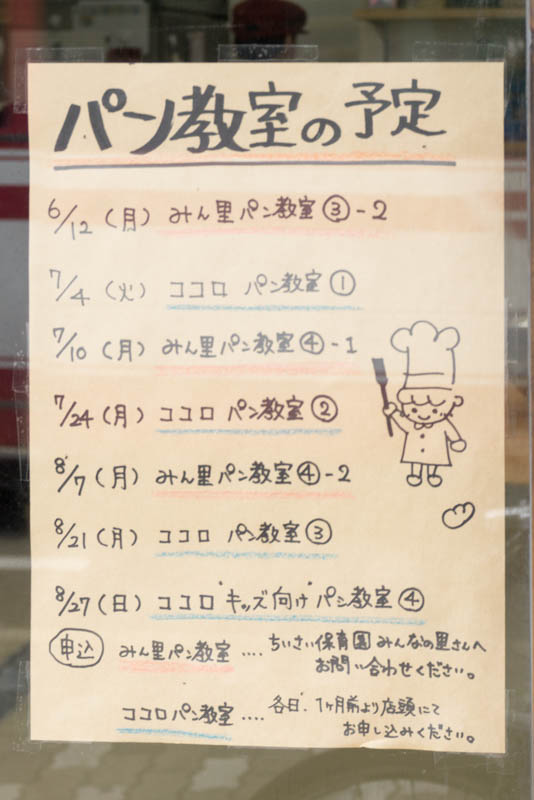 パン教室の予定
6/12（月）みん里パン教室③-2
7/4（火）ココロ パン教室①
7/10（月）みん里パン教室④-1
7/24（月）ココロ パン教室②
8/7（月）みん里パン教室④-2
8/21（月）ココロ パン教室③
8/27（日）ココロ"キッズ向け"パン教室④
申込 みん里パン教室....ちいさい保育園みんなの里さんへ
お問い合わせください。
ココロパン教室....各日、1ヶ月前より店頭にて
お申し込みください。